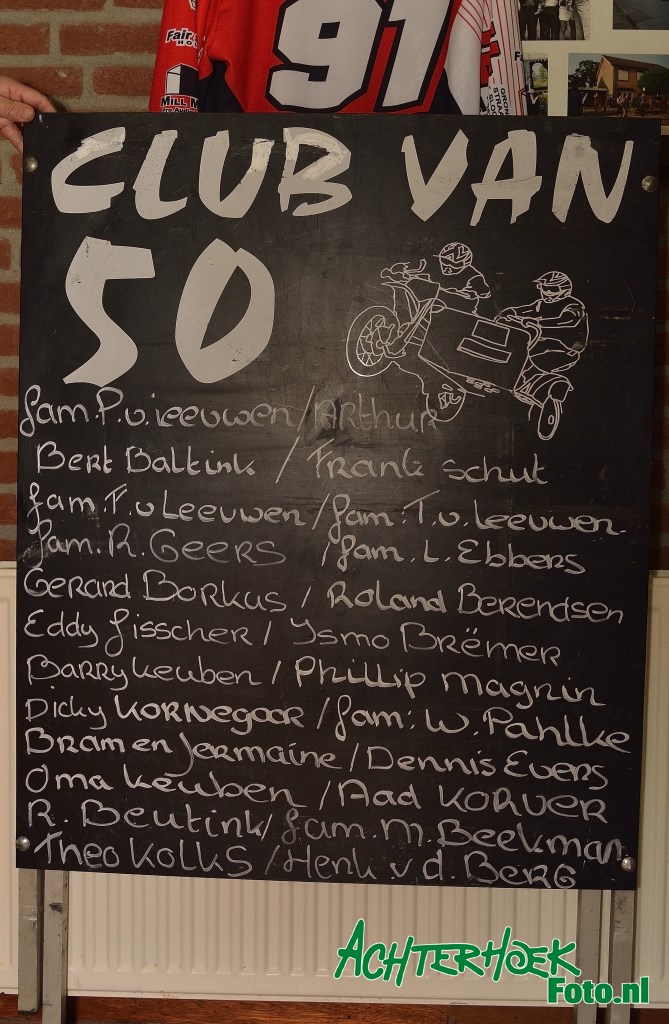 91
Fair
HO
MILL M
GRON
STRAA
SLOO
CLUB VAN
50
fam. P. v. Leeuwen / Arthur
Bert Baltink / Frank Schut
fam. F. v Leeuwen / fam. T. v. Leeuwen
fam. R. Geers / fam. L. Ebbers
Gerard Borkus / Roland Berendsen
Eddy fisscher / Ysmo Brëmer
Barry Keuben / Phillip Magnin
Dicky Kornegoor / fam. W. Pahlke
Bram en Jermaine / Dennis Evers
Oma Keuben / Aad Korver
R. Beutink / fam. M. Beekman
Theo Kolks / Henk v d. Berg
ACHTERHOEK
Foto.nl